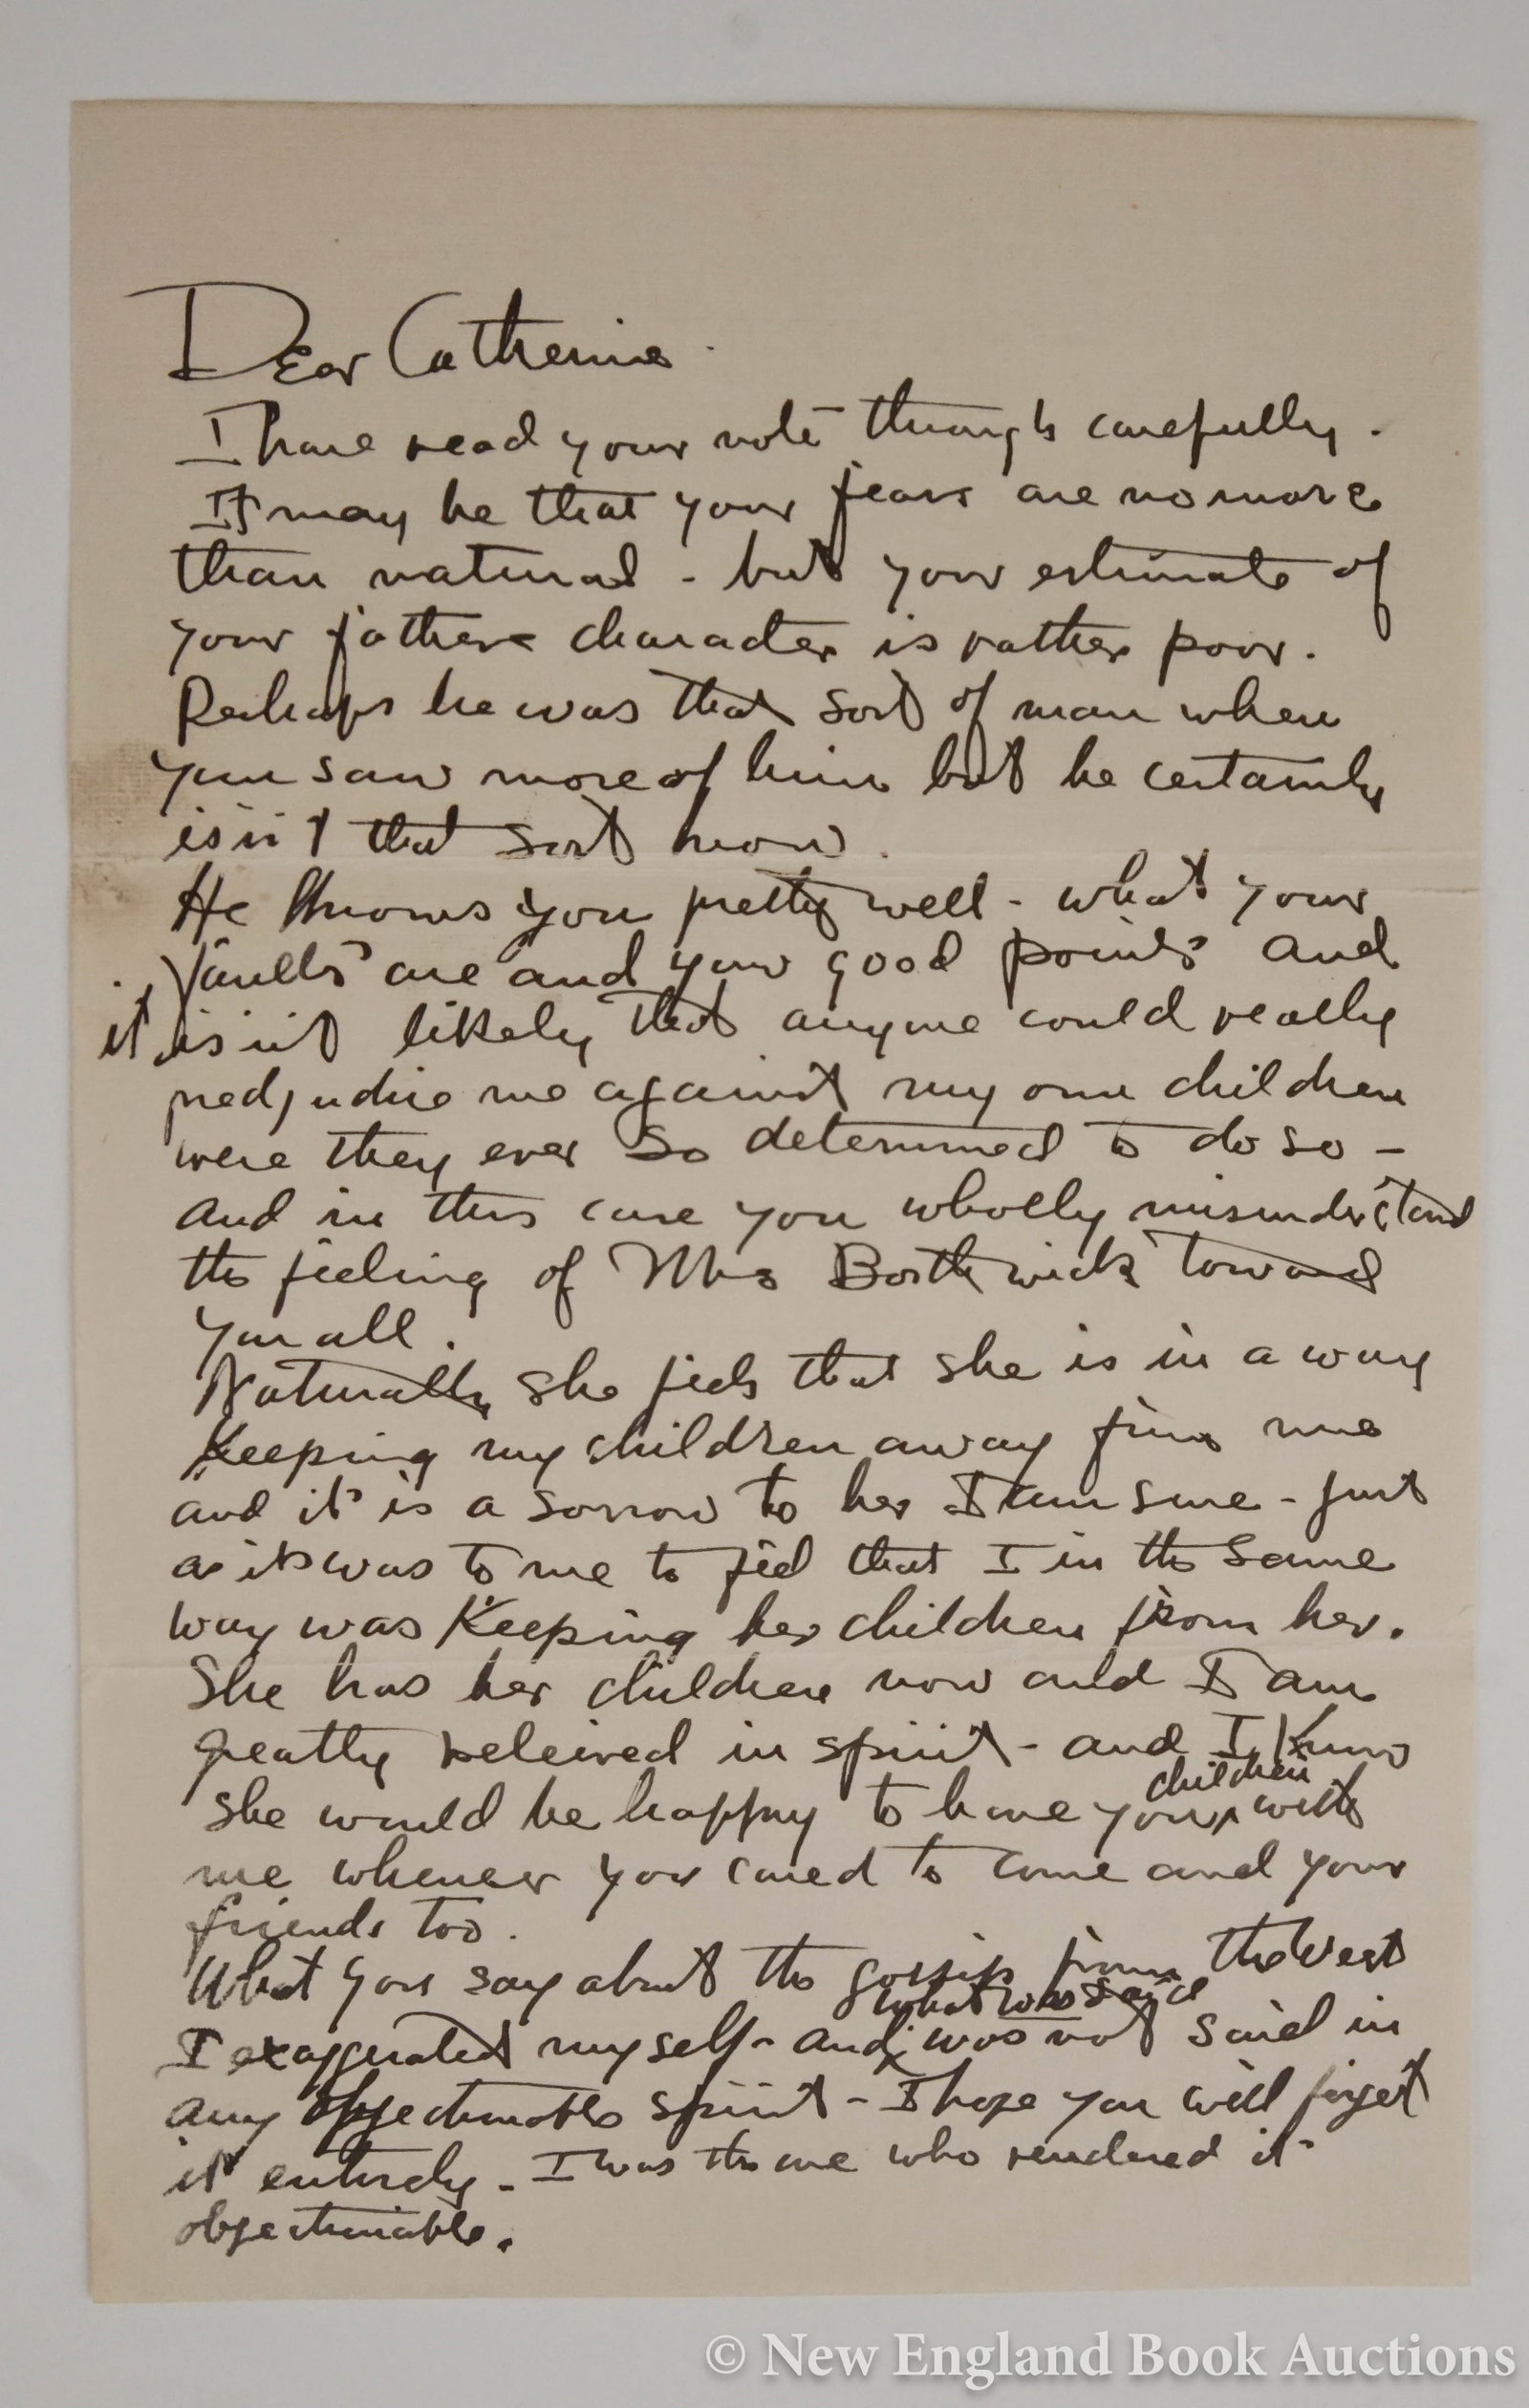 Dear Catherine.
I have read your note through carefully.
It may be that your fears are no more
than natural - but your estimate of
your fathers character is rather poor.
Perhaps he was that sort of man when
you saw more of him but he certainly
isn't that sort now.
He knows you pretty well - what your
faults are and your good points and
it isn't likely that anyone could really
predjudice me against my own children
were they ever so determined to do so -
and in this case you wholly misunderstand
the feeling of Mrs Borthwick toward
you all.
Naturally she feels that she is in a way
Keeping my children away from me
and it is a sorrow to her I am sure - just
as it was to me to feel that I in the same
way was Keeping her children from her.
She has her children now and I am
greatly releived in spirit - and I Know
children
she would be happy to have your with
me whenever you cared to come and your
friends too.
What you say about the gossip from the West
what was said
I exaggerated myself - and was not said in
any objectionable spirit - I hope you will forget
it entirely - I was the one who rendered it
objectionable.
© New England Book Auctions